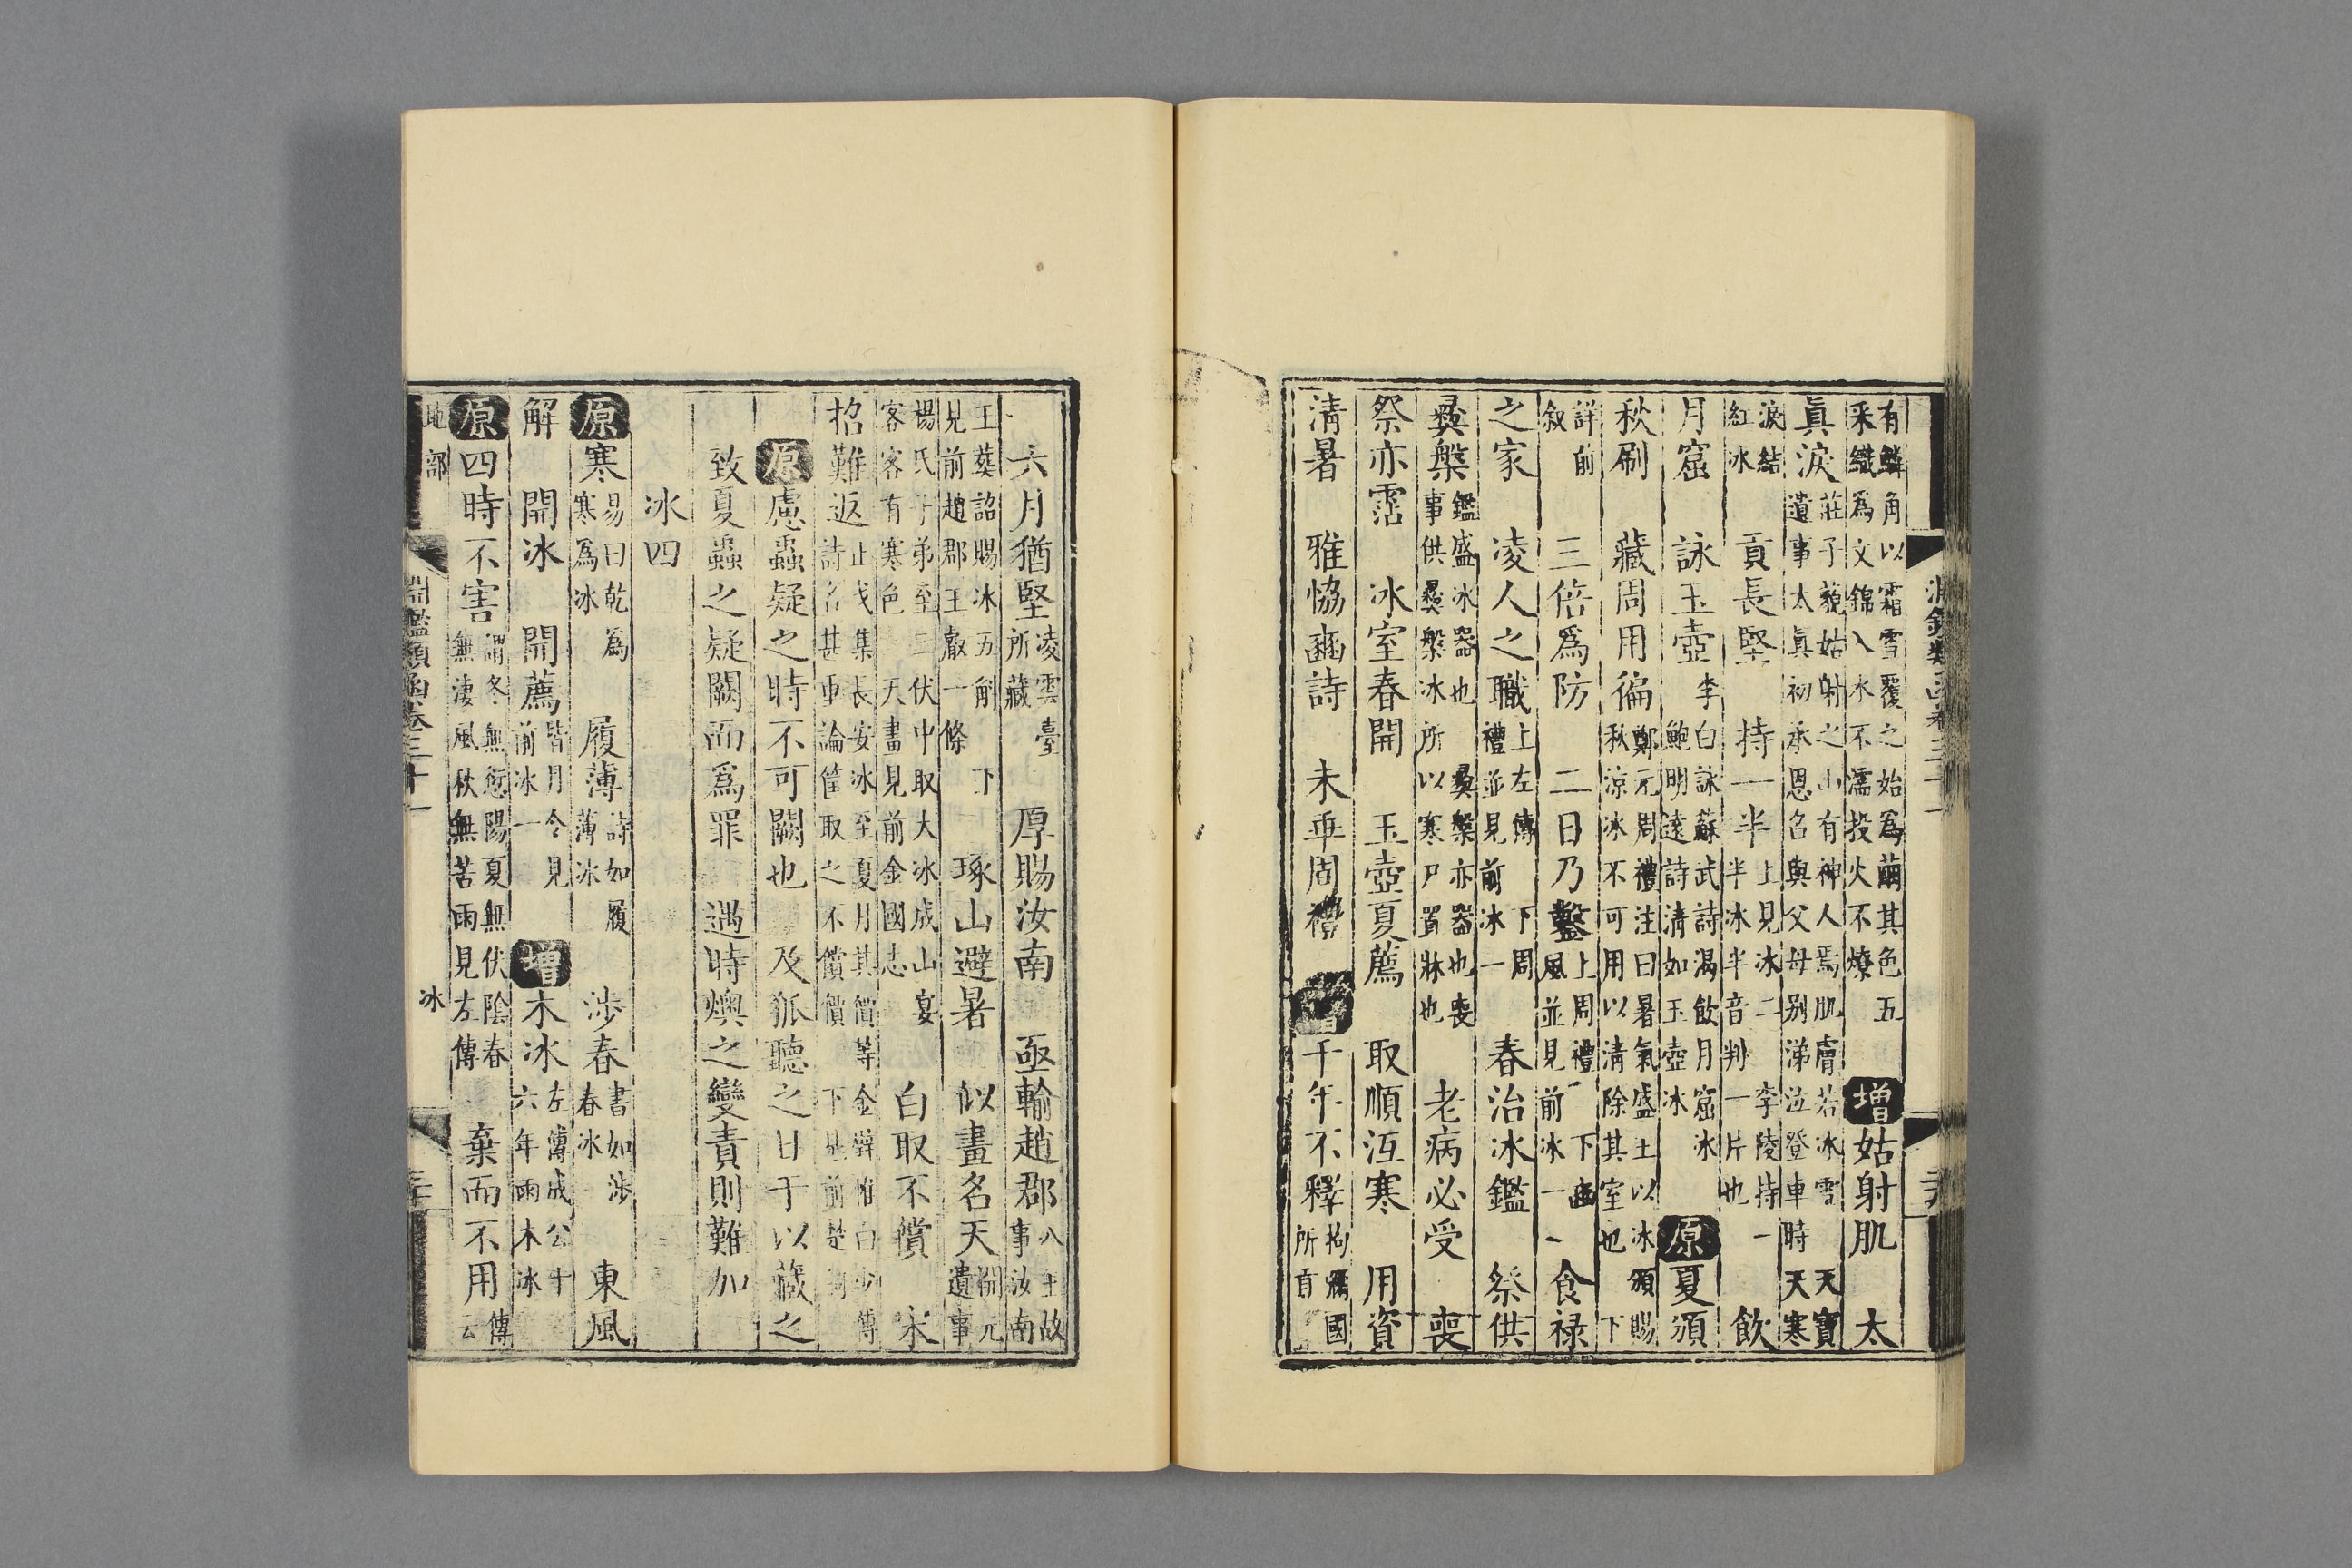 有鱗角以霜雪覆之始爲繭其色五
采織爲文錦入水不濡投火不燎
增姑射肌　太
眞淚
莊子藐姑射之山有神人焉肌膚若冰雪　天寶
遺事太眞初承恩召與父母别涕泣登車時天寒
淚結
紅冰
貢長堅　持一半
上見冰二　李陵持一
半冰半音判一片也
飲
月窟　詠玉壺
李白詠蘇武詩渴飲月窟冰
鮑明遠詩清如玉壺冰
原夏頒
秋刷　藏周用徧
鄭元周禮注曰暑氣盛王以冰頒賜
秋涼冰不可用以清除其室也　下
詳前
叙
三倍爲防　二日乃鑿
上周禮　下豳
風並見前冰一
食禄
之家　凌人之職
上左傳　下周
禮並見前冰一
春治冰鑑　祭供
彝槃
鑑盛冰器也　彝槃亦器也喪
事供彝槃冰所以寒尸置牀也
老病必受　喪
祭亦霑　冰室春開　玉壺夏薦　取順沍寒　用資
清暑　雅恊豳詩　未乖周禮　增千年不釋
拘彌國
所貢
淵鑑類函卷三十一
六月猶堅
凌雲臺
所藏
厚賜汝南　亟輸趙郡
八王故
事汝南
王葵詔賜冰五斛　下
見前趙郡王叡一條
琢山避暑　似畫名天
開元
遺事
楊氏子弟至三伏中取大冰成山宴
客客有寒色　天畫見前金國志
白取不償　宋
招難返
止戈集長安冰至夏月其價等金
詩名甚重論筐取之不償價　下見前
原慮蟲疑之時不可闕也　及狐聽之日于以藏之
致夏蟲之疑闕而爲罪　遇時燠之變責則難加
冰四
原寒
易曰乾爲
寒爲冰
履薄
詩如履
薄冰
涉春
書如涉
春冰
東風
解　開冰　開薦
皆月令見
前冰一
增木冰
左傳成公十
六年雨木冰
原四時不害
謂冬無愆陽夏無伏陰春
無淒風秋無苦雨見左傳
棄而不用
傳
云
地部
淵鑑類函卷三十一
冰